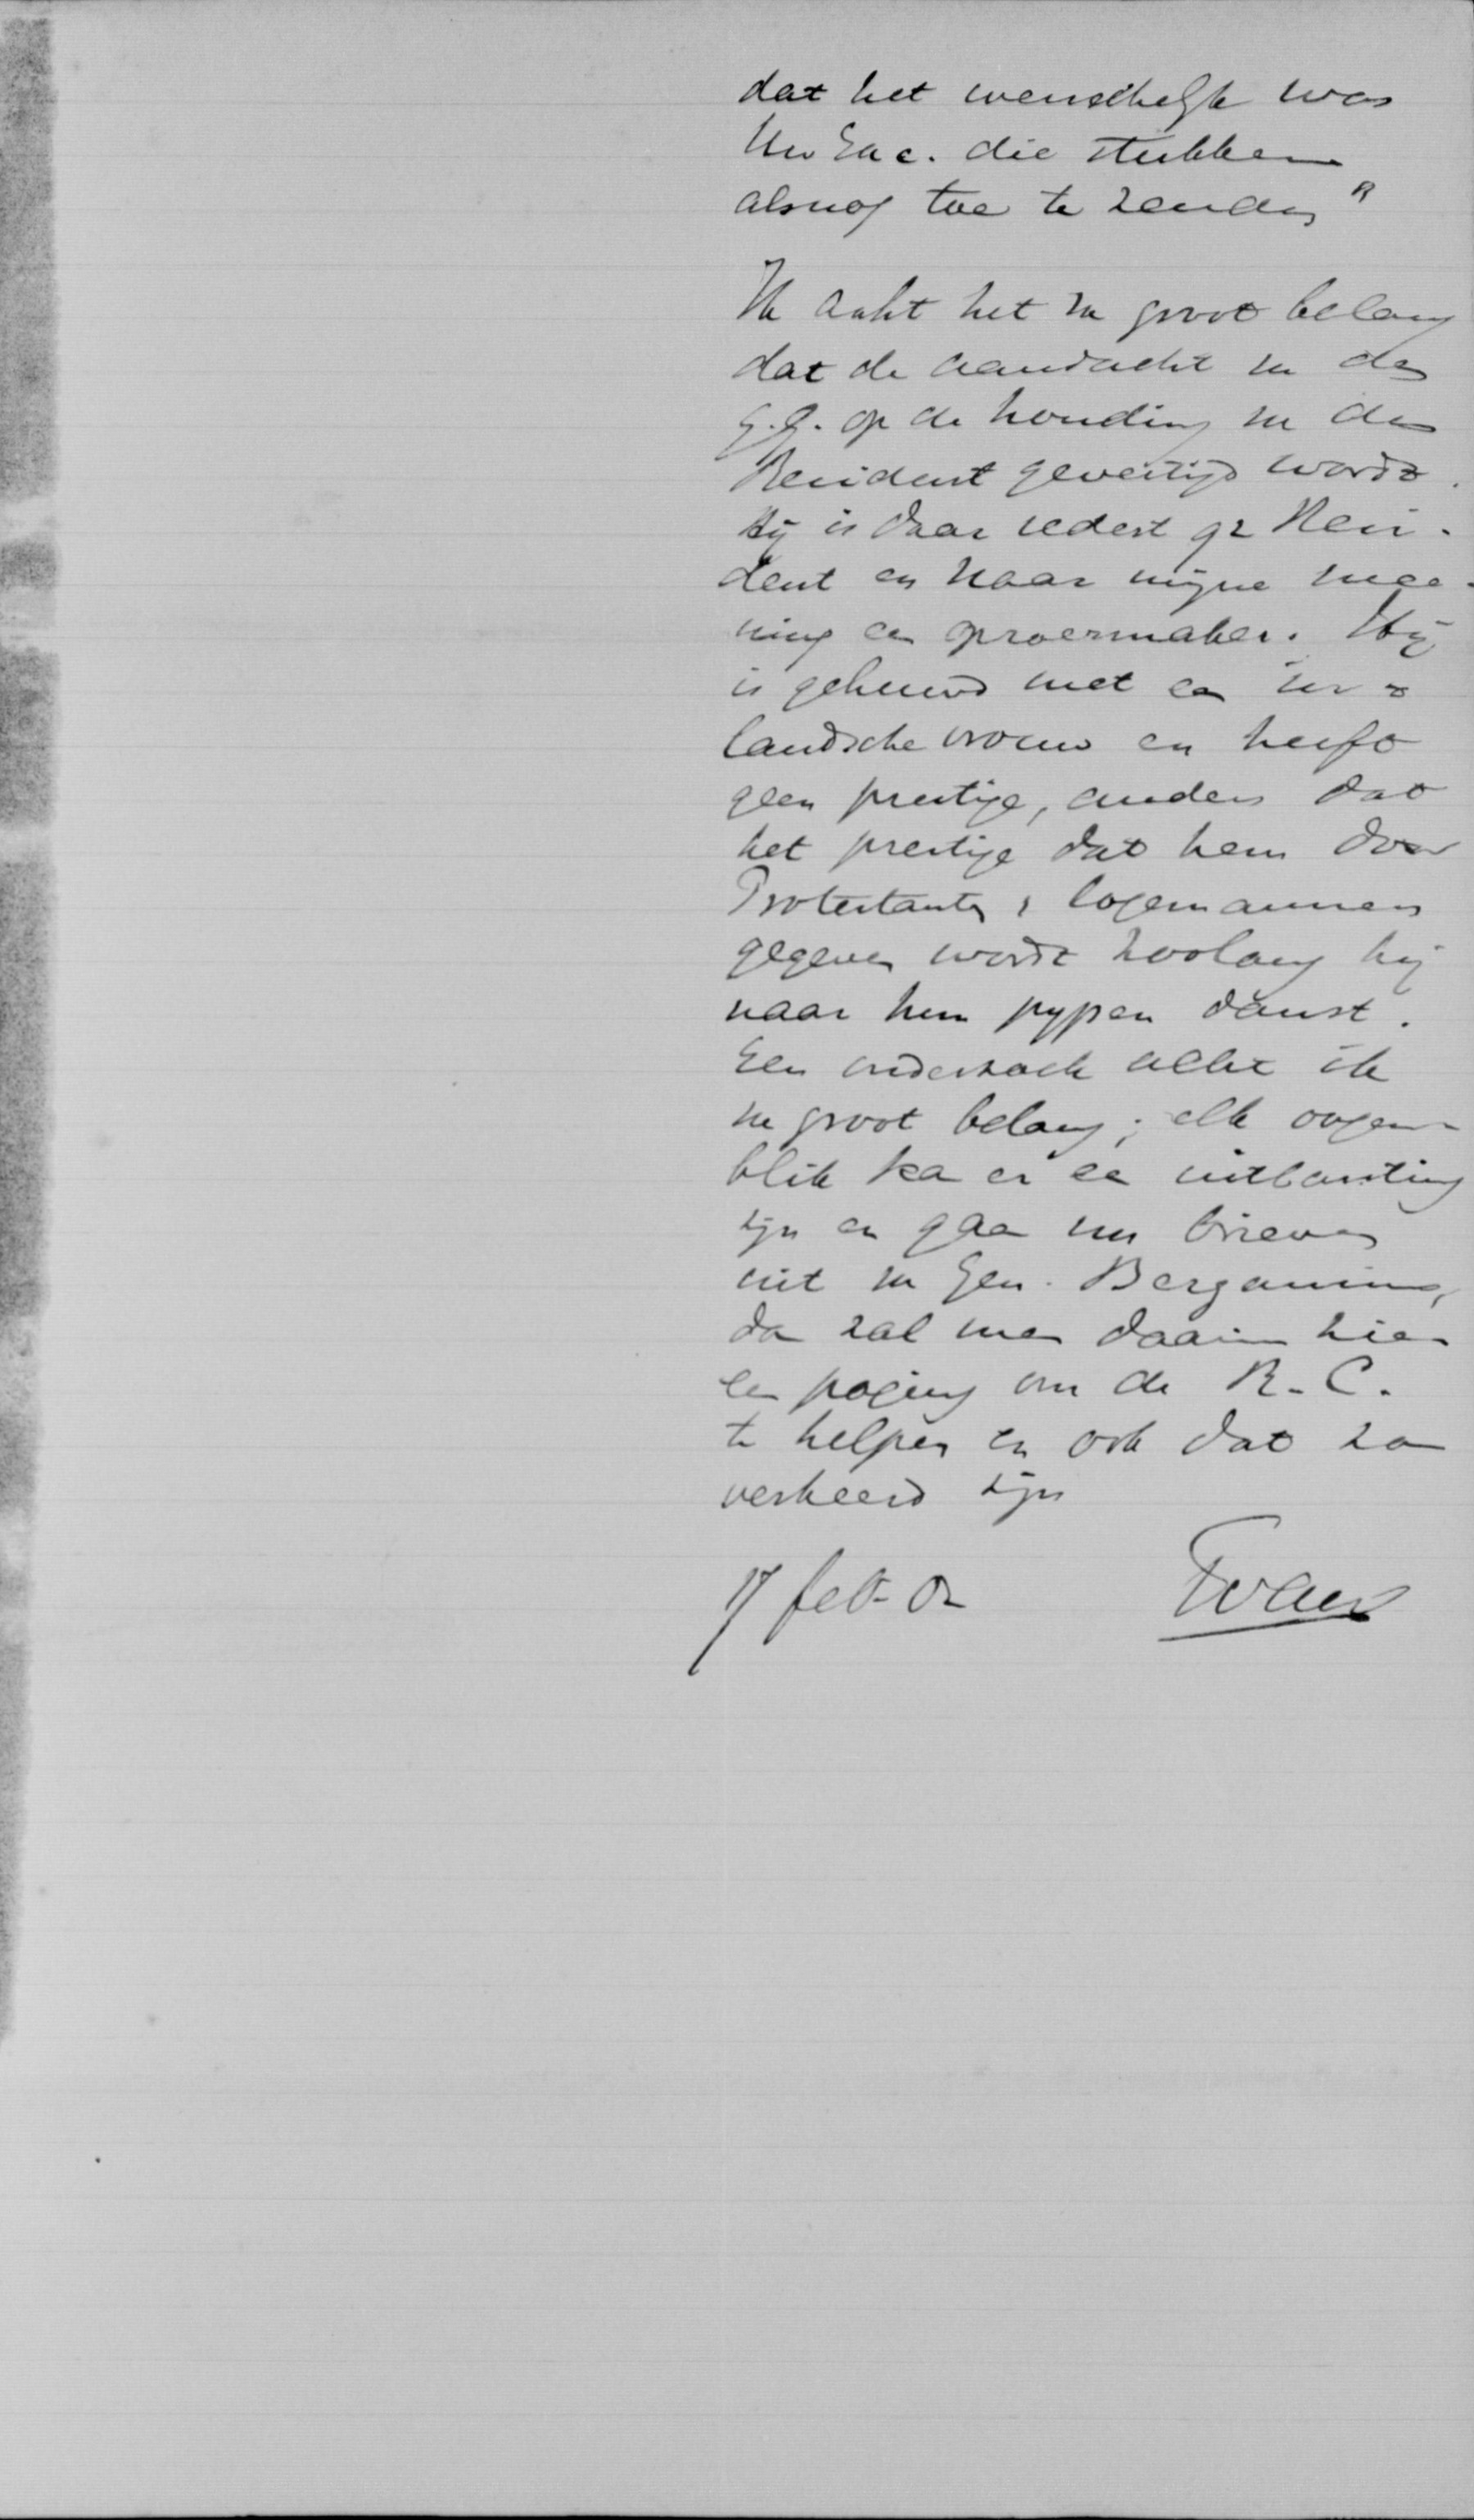 dat het wenschelijk was
Uw Exc. die stukken
alsnog toe te zenden"
Ik acht het van groot belang
dat de aandacht van den
G.G. op de houding van den
Resident gevestigd wordt.
Hij is daar sedert Resi-
dent en naar mijne mee-
ning een oproermaker. Hij
is gehuwd met een in-
landsche vrouw en heeft
geen prestige, anders dan
het prestige dat hem door
Protestanten & logemannen
gegeven wordt zoolang hij
naar hun pypen danst.
Een onderzoek acht ik
van groot belang; elk oogen-
blik kan er een uitbarsting
zijn en gaan nu brieven
uit van Gen. Bergansius,
dan zal men daarin zien
een poging om de R.C.
te helpen en ook dat zou
verkeerd zijn
17 feb. 02